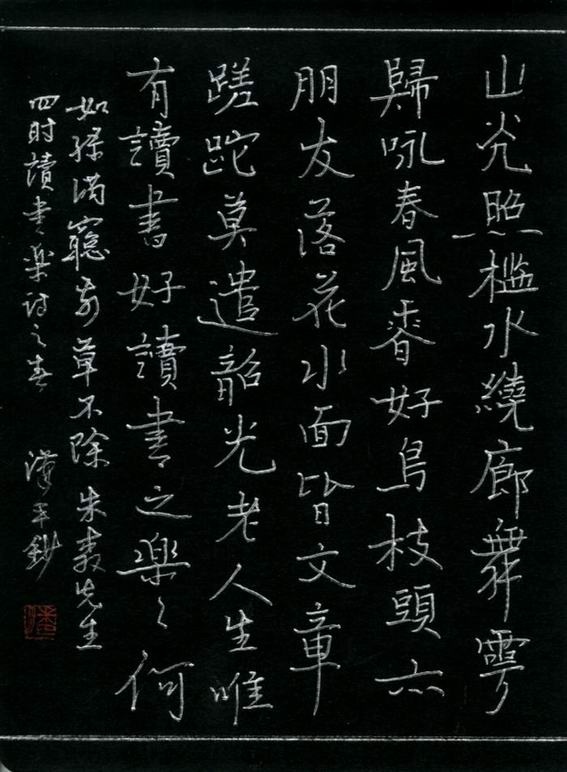 山光照檻水繞廊舞雩
歸咏春風香好鳥枝頭亦
朋友落花水面皆文章
蹉跎莫遣韶光老人生唯
有讀書好讀書之楽〻何
如綠满窻前草不除 朱熹先生
四时讀書楽诗之春 漢平鈔